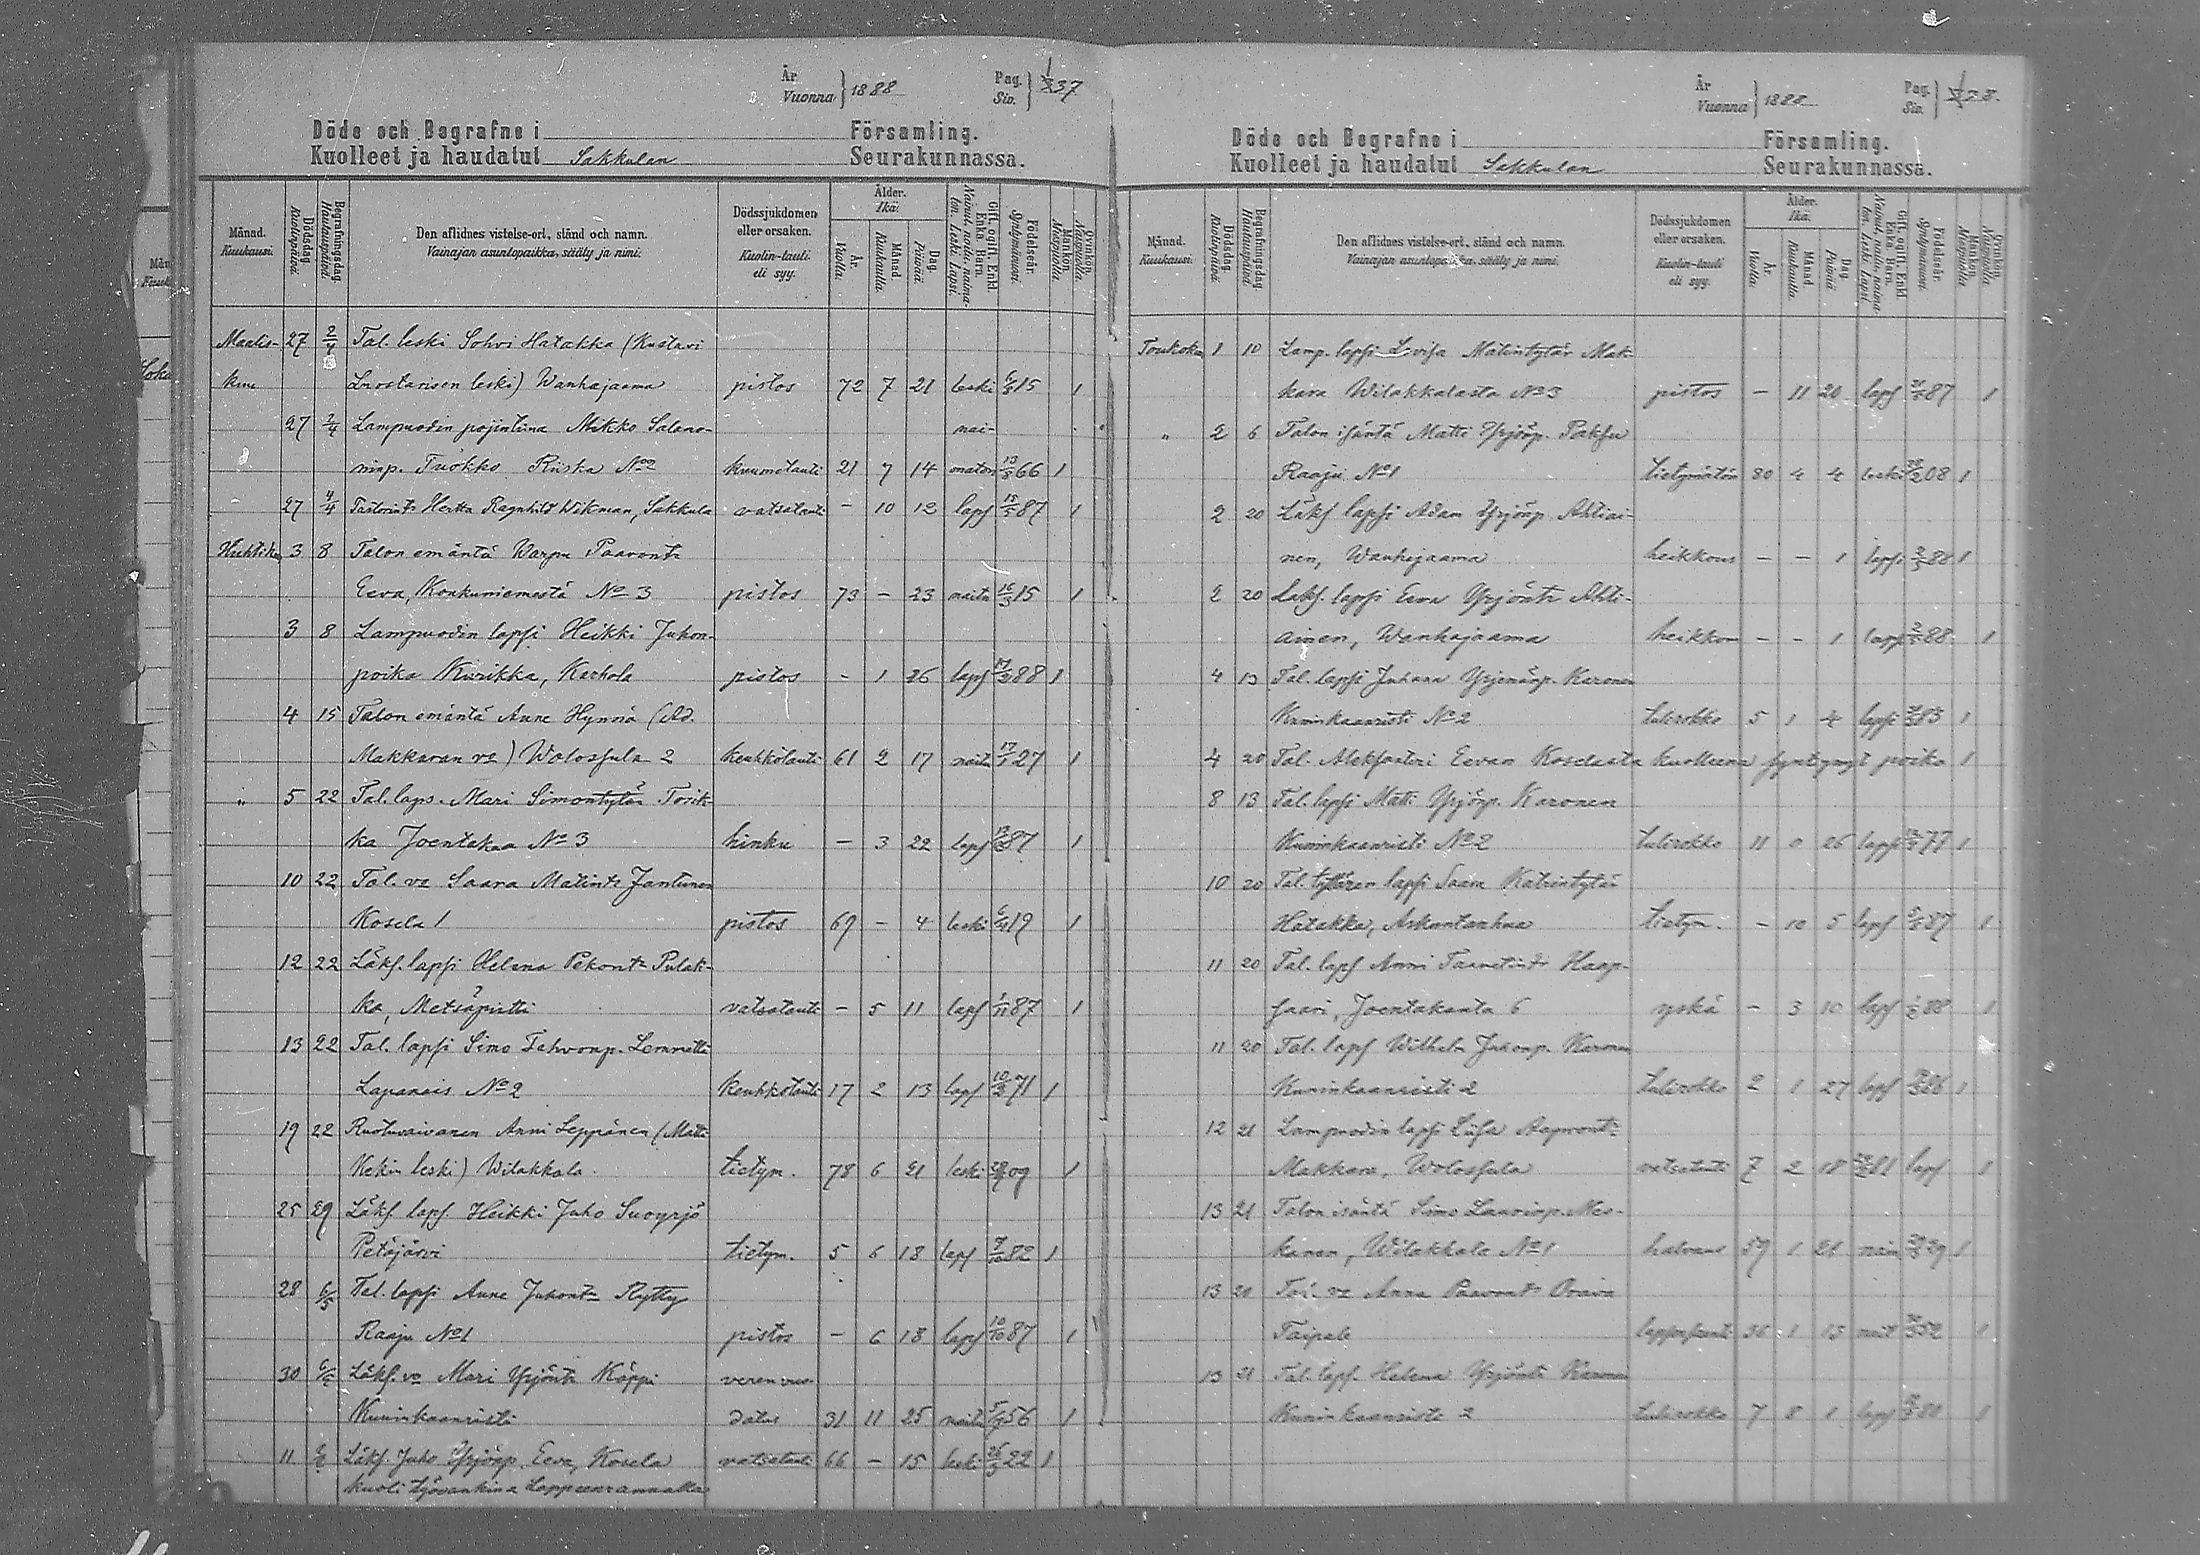 År
Vuonna } 1888
Pag.
Siv. } 37
Döde och Begrafne i Församling.
Kuolleet ja haudatut Sakkulan Seurakunnassa.
Månad. Kuukausi. Dödsdag. Kuolinpäivä. Begrafningsdag. Hautauspäivä. Den aflidnes vistelse-ort, stånd och namn. Vainajan asuntopaikka, sääty ja nimi. Dödssjukdomen eller orsaken. Kuolin-tauti eli syy. Ålder. Ikä: År Vuotta. Månad Kuukautta. Dag. Päivää. Gift, ogift, Enkl. Enka, Barn. Nainut, naitu, naimaton, Leski, Lapsi. Födelseår. Syntymävuosi. Mankön. Miespuolta. Qvinkön. Naispuolta.
Maalis- 27 2/4 Tal. leski Sohvi Hatakka (Kustavi
kuu leski) Wanhajaama pistos 72 7 21 leski 15 1
27 2/4 Lampuodin pojintima Mikko Salamo- nai-
ninp. Tuokko Riiska No 2 kuumetauti 21 7 14 maton 13/8 66 1
27 4/4 Hertta Ragnhild Wikman, Sakkula vatsatauti - 10 12 laps 15/5 87 1
Huhtiku 3 8 Talon emäntä Warpu Paavontr
Eeva, Konkuniemestä No 3 pistos 73 - 23 naitu 15 1
3 8 Lampuodin lapsi Heikki Juhon-
poika Kiurikka, Karhola pistos - 1 26 laps 88 1
4 15 Talon emäntä Anne Hynnä (Ad.
Makkaran vo) Wolossula 2 keuhkotauti 61 2 17 naitu 17/1 27 1
" 5 22 Tal. laps. Mari Simontytär Tosik-
ka Joentakaa No 3 hinku - 3 22 laps 87 1
10 22 Tal. vo Saara Matintr Jantunen
Kosela 1 pistos 69 - 4 leski 6/4 19 1
12 22 Läks. lapsi Helena Pekontr Pulak-
ka, Metsäpirtti vatsatauti - 5 11 laps 1/11 87 1
13 22 Tal. lapsi Simo Tahvonp. Lemmetti
Lapanais No 2 keuhkotauti 17 2 13 laps 71 1
19 22 Ruotuvaivanen Anni Leppänen (Matti
Kekin leski) Wilakkala tietym. 78 6 21 leski 09 1
25 29 Läks. laps. Heikki Juho Suoyrjö
Petäjärvi tietym. 5 6 18 laps 7/10 82 1
28 6/5 Tal. lapsi Anna Juhontr Rytty
Raaju No 1 pistos - 6 18 laps 10/10 87 1
30 6/5 Läks. vo Mari Yrjöntr Käppi verenvuo-
Kuninkaanristi datus 31 11 25 naitu 56 1
11 Läks. Juho Yrjönp. Eeva, Kosela vatsatauti 66 - 15 leski 26/3 22 1
kuoli työvankina Lappeenrannalla
År
Vuonna } 1888
Pag.
Siv. } 38.
Döde och Begrafne i Församling.
Kuolleet ja haudatut Sakkulan Seurakunnassa.
Månad. Kuukausi. Dödsdag. Kuolinpäivä. Begrafningsdag. Hautauspäivä. Den aflidnes vistelse-ort, stånd och namn. Vainajan asuntopaikka, sääty ja nimi. Dödssjukdomen eller orsaken. Kuolin-tauti eli syy. Ålder. Ikä: År Vuotta. Månad Kuukautta. Dag. Päivää. Gift, ogift, Enkl. Enka, Barn. Nainut, naitu, naimaton, Leski, Lapsi. Födelseår. Syntymävuosi. Mankön. Miespuolta. Qvinkön. Naispuolta.
Toukoku 1 10 Lamp. lapsi Lovisa Matintytär Mak-
kara Wilakkalasta No 3 pistos - 11 20 laps 87 1
" 2 6 Talon isäntä Matti Yrjönp. Paksu
Raaju No 1 tietymätön 80 4 4 leski 08 1
2 20 Läks lapsi Adam Yrjönp. Ahtiai-
nen, Wanhajaama heikkous - - 1 lapsi 88 1
2 20 Läks. lapsi Eeva Yrjöntr Ahti-
ainen, Wanhajaama heikkous - - 1 laps 88 1
4 13 Tal. lapsi Juhana Yrjönänp. Karonen
Kuninkaanristi No 2 tulirokko 5 1 4 lapsi 83 1
4 20 Tal. Eevan Koselasta kuolleena syntynyt poika 1
8 13 Tal. lapsi Matti Yrjönp. Karonen
Kuninkaanristi No 2 tulirokko 11 0 26 lapsi 77 1
10 20 Tal. tyttären lapsi Saara Katrintytär
Hatakka, Arkuntanhua tietym. - 10 5 laps 87 1
11 20 Tal. laps Anni Taanetintr Haap-
saari, Joentakaata 6 yskä - 3 10 laps 88 1
11 20 Tal. laps Wilhelm Juhonp. Karonen
Kuninkaanristi 2 tulirokko 2 1 27 laps 86 1
12 21 Lampuodin lapsi Liisa Aapront.
Makkara, Wolossula vatsatauti 7 2 18 81 laps 1
13 21 Talon isäntä Simo Laurinp. Mes-
kanen, Wilakkala No 1 halvaus 59 1 21 nain 29 1
13 20 vo Anna Paavontr Orava
Taipale lapsensaanti 36 1 13 nait 52 1
13 21 Tal. laps. Helena Yrjöntr Karonen
Kuninkaanristi 2 tulirokko 7 8 1 laps 80 1